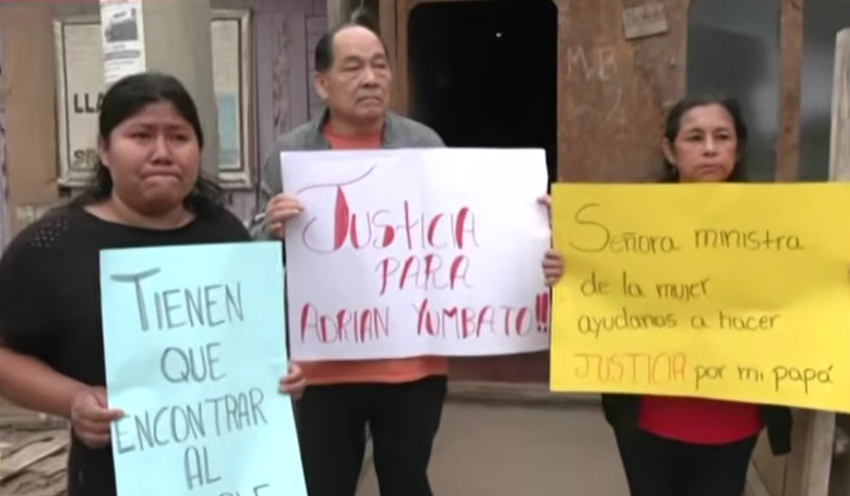 TIENEN
QUE
ENCONTRAR
AL
JUSTICIA
PARA
ADRIAN YUMBATO!!
Señora ministra
de la mujer
ayudanos a hacer
JUSTICIA por mi papá
LLA